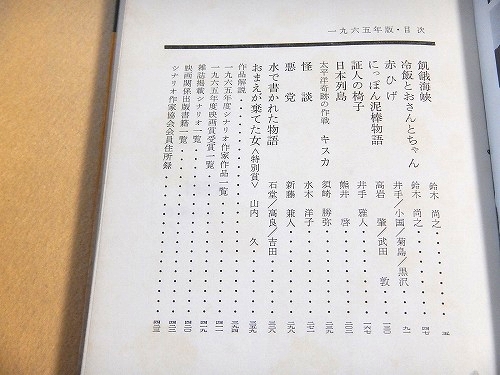 一九六五年版・目次
飢餓海峡 鈴木 尚之 五
冷飯とおさんとちゃん 鈴木 尚之 四七
赤ひげ 井手/小国/菊島/黒沢 九一
にっぽん泥棒物語 高岩 肇/武田 敦 一三〇
証人の椅子 井手 雅人 一六七
日本列島 熊井 啓 二〇二
太平洋奇跡の作戦 キスカ 須崎 勝弥 二三九
怪談 水木 洋子 二七一
悪党 新藤 兼人 二九八
水で書かれた物語 石堂/高良/吉田 三二八
おまえが棄てた女<特別賞> 山内 久 三五九
作品解説 三九四
一九六五年度シナリオ作家作品一覧 四一一
一九六五年度映画賞受賞一覧 四一九
雑誌掲載シナリオ一覧 四二〇
映画関係出版書籍一覧 四二二
シナリオ作家協会会員住所録 四二三